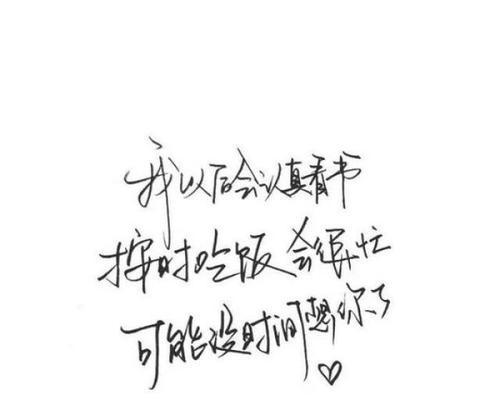 我以后会认真看书
按时吃饭 会很忙
可能没时间想你了